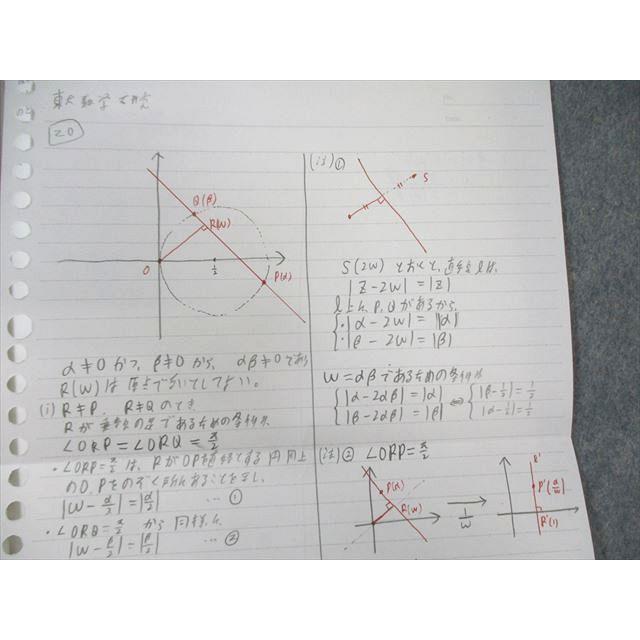 東大数学
20
Q(β)
R(W)
O
1/2
P(α)
α≠0 かつ β≠0 から、αβ≠0 であり
R(W)は原点でないとしてよい。
(i) R≠P, R≠Q のとき
Rが垂線の足であるための条件は
∠ORP=∠ORQ=π/2
・∠ORP=π/2 は、RがOPを直径とする円周上
のO,Pを
|W-α/2|=|α/2| …①
・∠ORQ=π/2 から同様に
|W-β/2|=|β/2| …②
(注)①
S
S(2W)とおくと、直線ℓは、
|Z-2W|=|Z|
ℓ上にP,Qがあるから
・|α-2W|=|α|
・|β-2W|=|β|
W=αβであるための条件は
|α-2αβ|=|α|
|β-2αβ|=|β|
⇔
|β-1/2|=1/2
|α-1/2|=1/2
(注)② ∠ORP=π/2
P(α)
R(W)
1/W
ℓ'
P'(α/W)
R'(1)